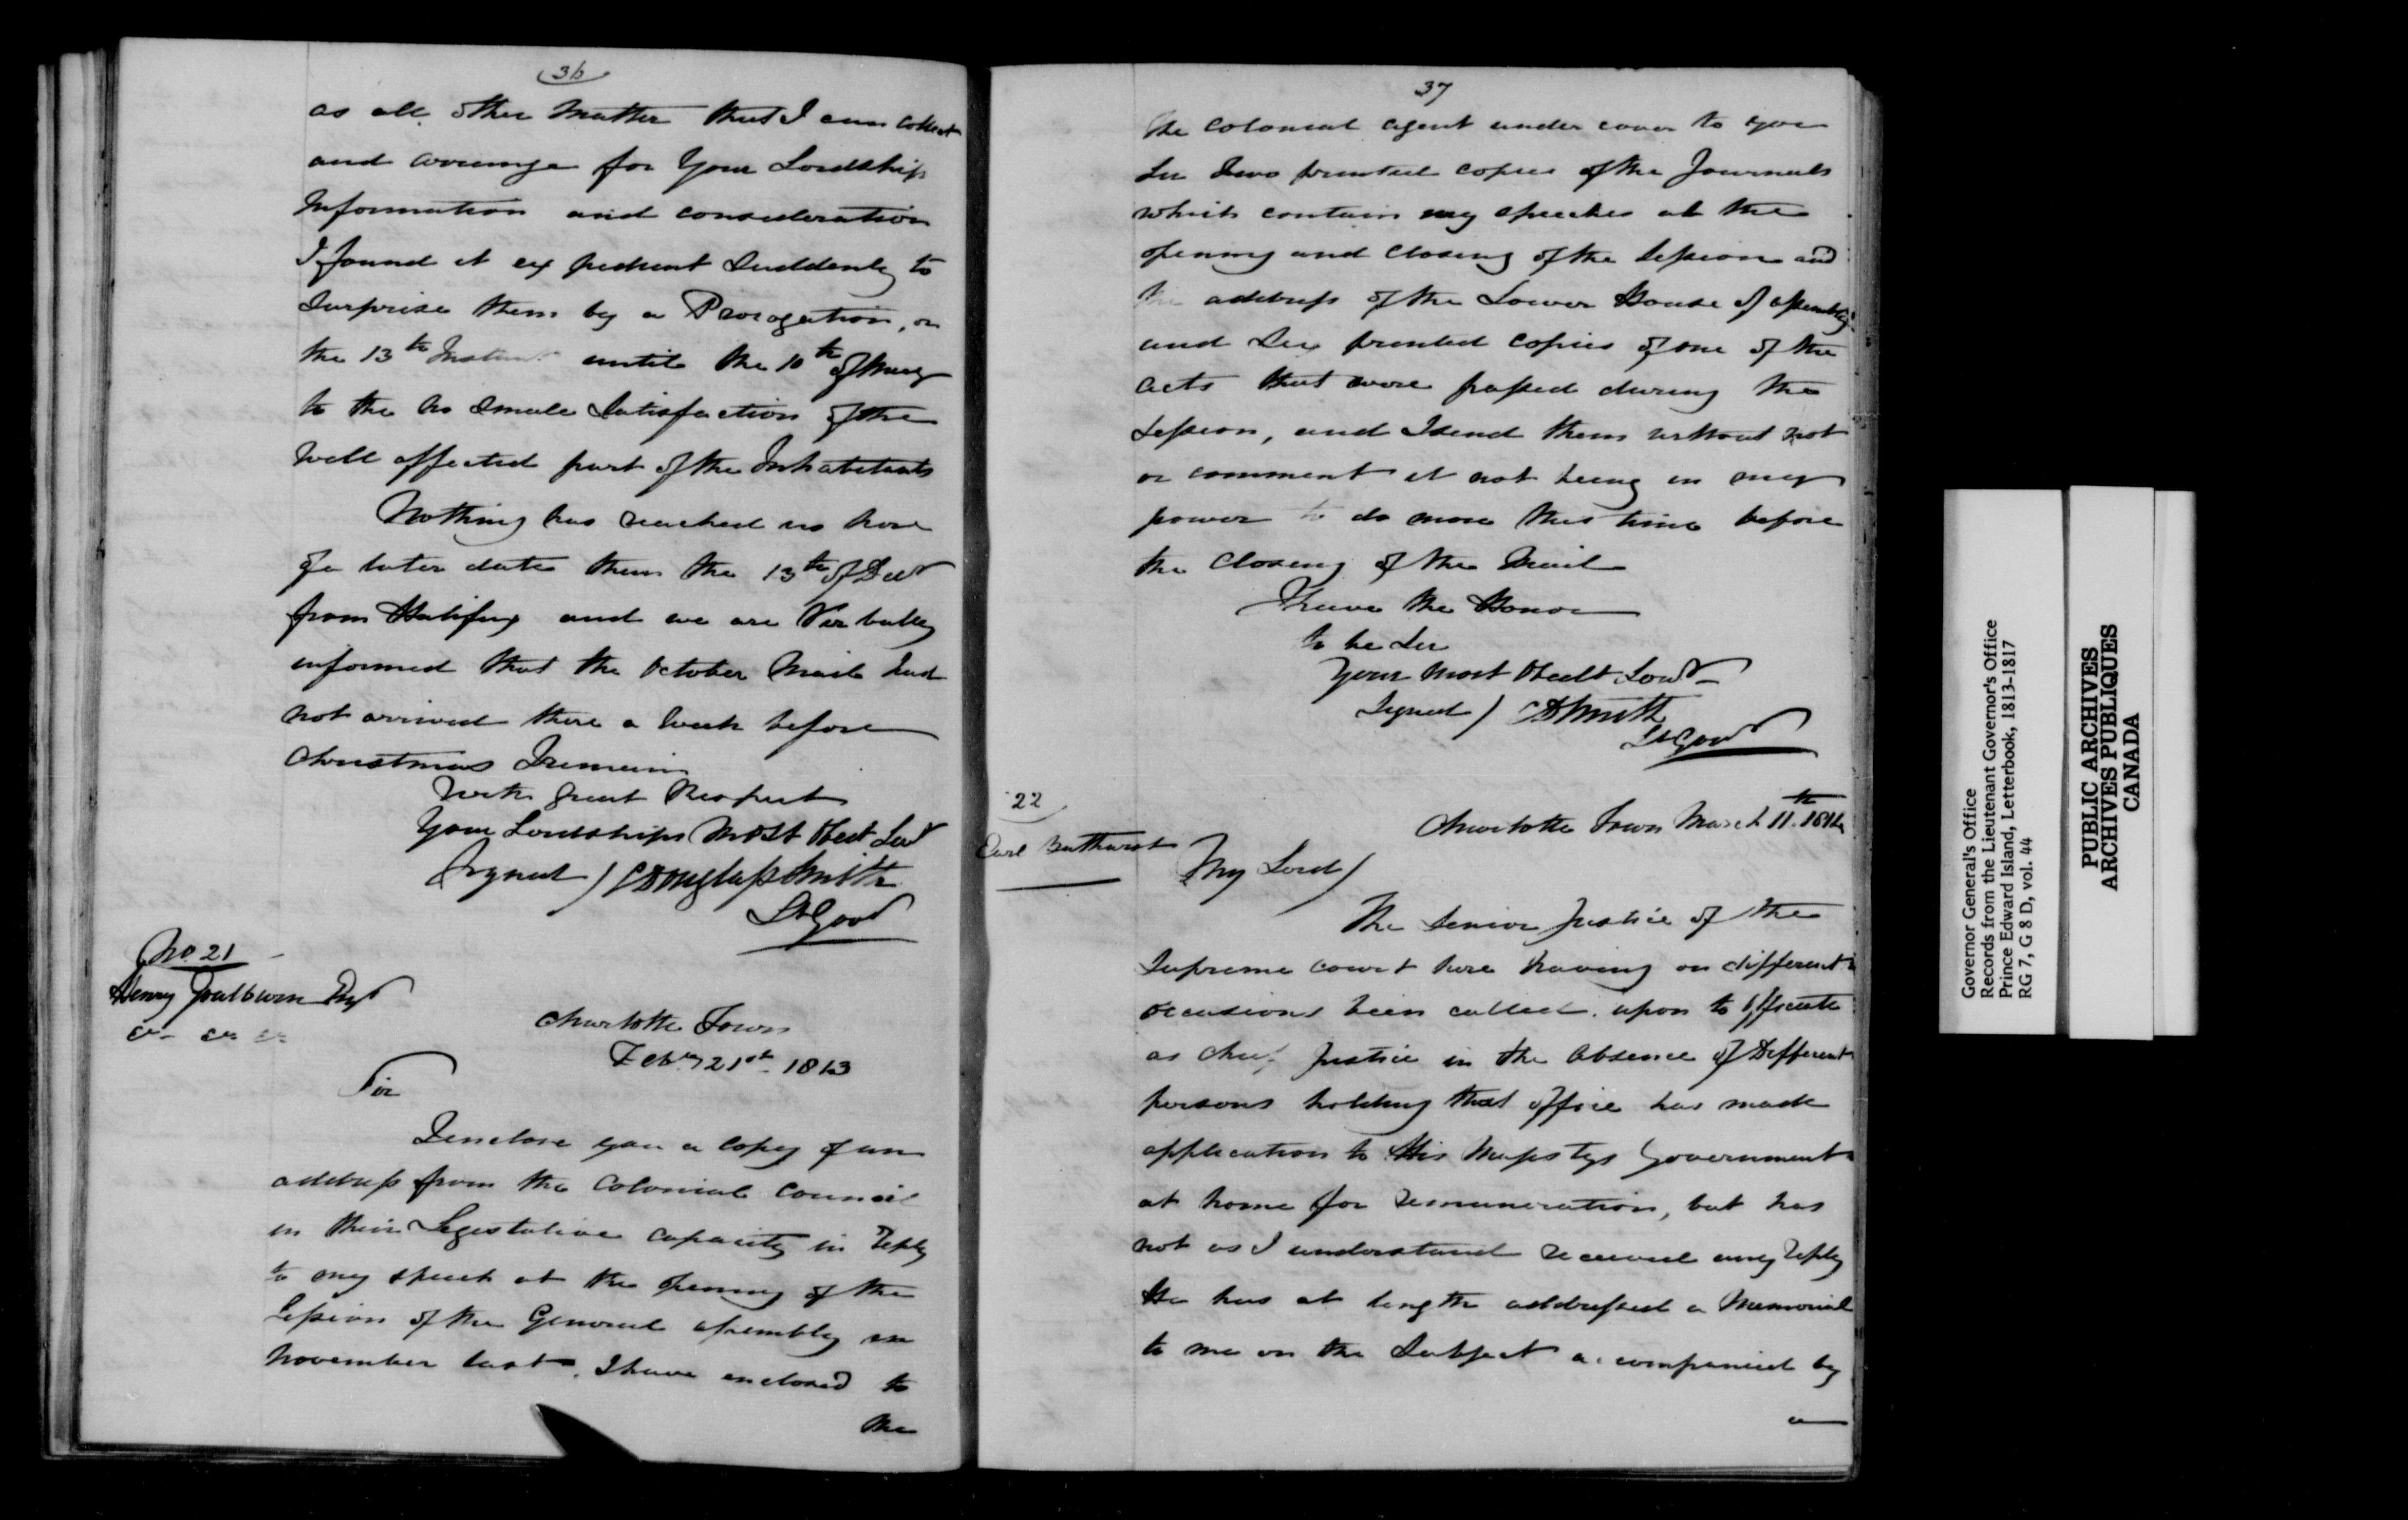 36
as all other Matter that I can Collect
and arrange for Your Lordships
Information and consideration
I found it expedient Suddenly to
Surprise them by a Prorogation, on
the 13th Instant until the 10th of May
to the no Small Satisfaction of the
well affected part of the Inhabitants
Nothing has reached us here
of a later date than the 13th of Decr
from Halifax and we are Verbally
informed that the October Mail had
not arrived there a Week before
Christmas I remain
With great Respect
Your Lordships Most Obedt Servt
Signed / CDouglass Smith
Lt Govr
No. 21
Henry Goulburn Esqr
&c &c &c
Charlotte Town
Feby 21st 1813
Sir
I enclose you a Copy of an
address from the Colonial Council
in their Legislative capacity in reply
to my speech at the opening of the
Session of the General assembly in
November last. I have enclosed to
the
37
the Colonial agent under cover to you
Six Two printed copies of the Journals
which contain my speeches at the
opening and closing of the Session and
the address of the Lower House of assembly
and Six printed copies of one of the
acts that were passed during the
Session, and I send them without not
or comment it not being in my
power to do more this time before
the closing of the Mail
I have the Honor
to be Sir
Your most Obedt Servt
Signed / CDSmith
Lt Govr
22
Earl Bathurst
Charlotte Town March 11th 1814
My Lord /
The Senior Justice of the
Supreme court here having on different
occasions been called upon to officiate
as chief Justice in the absence of Different
persons holding that office has made
application to His Majestys Government
at home for remuneration, but has
not as I understand received any reply
He has at length addressed a Memorial
to me on the Subject accompanied by
a
Governor General's Office
Records from the Lieutenant Governor's Office
Prince Edward Island, Letterbook, 1813-1817
RG 7, G 8 D, vol. 44
PUBLIC ARCHIVES
ARCHIVES PUBLIQUES
CANADA